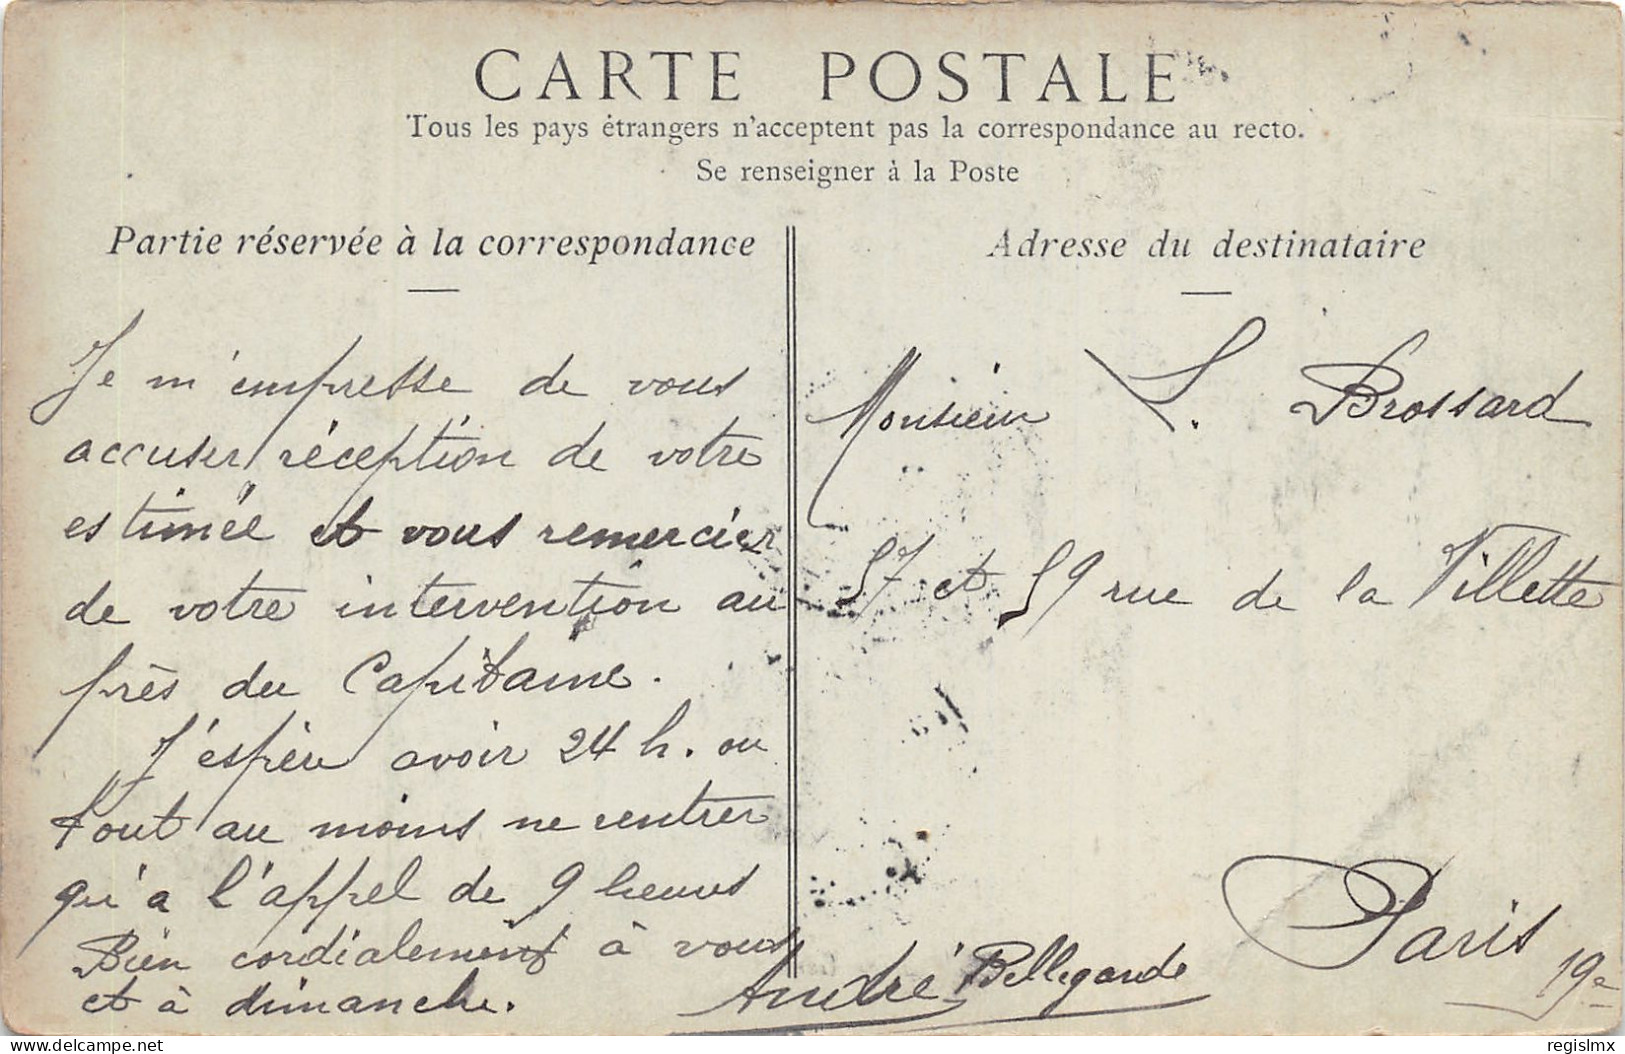 CARTE POSTALE
Tous les pays étrangers n'acceptent pas la correspondance au recto.
Se renseigner à la Poste
Partie réservée à la correspondance
Je m'empresse de vous
accuser réception de votre
estimée et vous remercier
de votre intervention au
près du Capitaine.
J'espère avoir 24 h. ou
tout au moins ne rentrer
qu'a l'appel de 9 heures
Bien cordialement à vous
et à dimanche.
André Bellegarde
Adresse du destinataire
Monsieur L. Brossard
57 et 59 rue de la Villette
Paris 19e
delcampe.net
regislmx